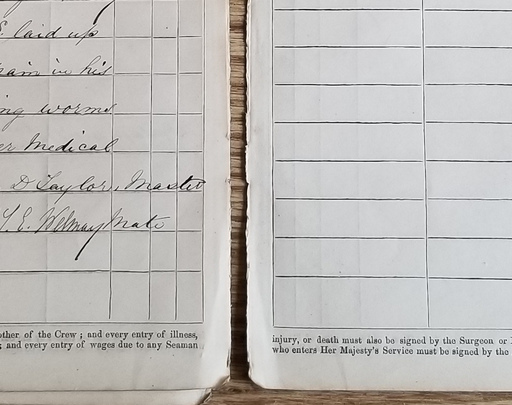 laid up
pain in his
ing worms
er Medical
D Taylor, Master
T. E. Mate
other of the Crew; and every entry of illness,
; and every entry of wages due to any Seaman
injury, or death must also be signed by the Surgeon or
who enters Her Majesty's Service must be signed by the